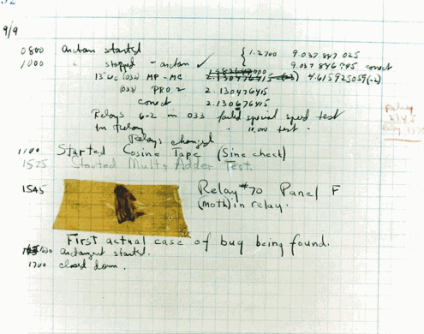 9/9
0800 antan started
1000 " stopped - antan ✓ { 1.2700 9.037 847 025
9.037 846 995 correct
13"uc (032) MP - MC 2.130476415 4.615925059(-2)
(033) PRO 2 2.130476415
correct 2.130676415
Relays 6-2 in 033 failed special speed test
in Relay " 10.000 test.
Relays changed
1100 Started Cosine Tape (Sine check)
1525 Started Mult+Adder Test.
1545 Relay #70 Panel F
(moth) in relay.
First actual case of bug being found.
1630 antangent started.
1700 closed down.